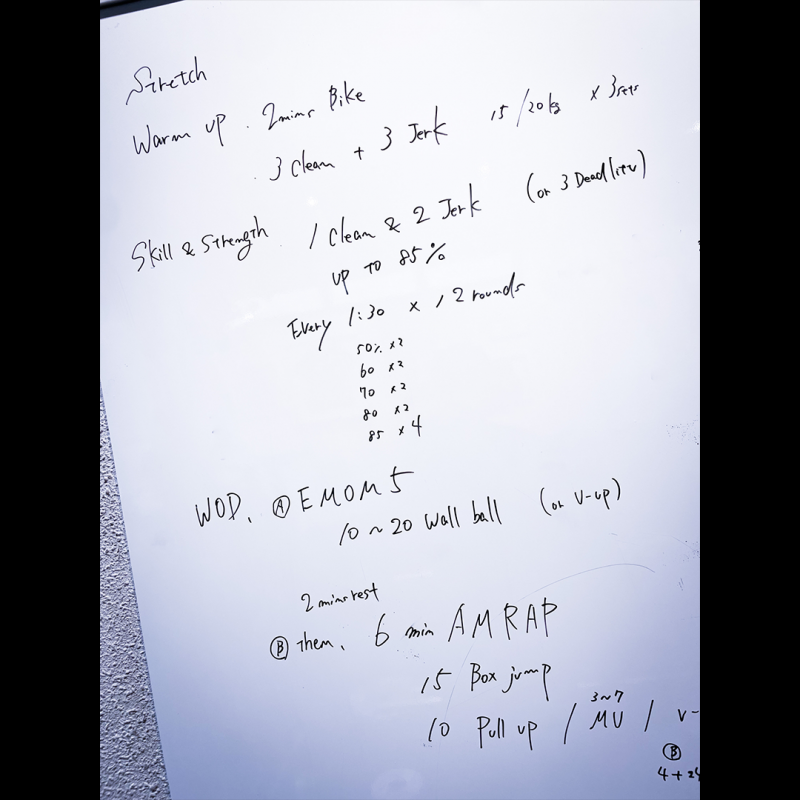 Stretch
Warm up . 2mins Bike
. 3 Clean + 3 Jerk 15/20kg × 3sets
Skill & Strength . 1 Clean & 2 Jerk (or 3 Deadlift)
up to 85%
Every 1:30 × 12 rounds
50% ×2
60 ×2
70 ×2
80 ×2
85 ×4
WOD. Ⓐ EMOM 5
10 ~ 20 Wall ball (or V-up)
2 mins rest
Ⓑ then, 6 min AMRAP
15 Box jump
3~7
10 Pull up / MU / V-
Ⓑ
4 + 24